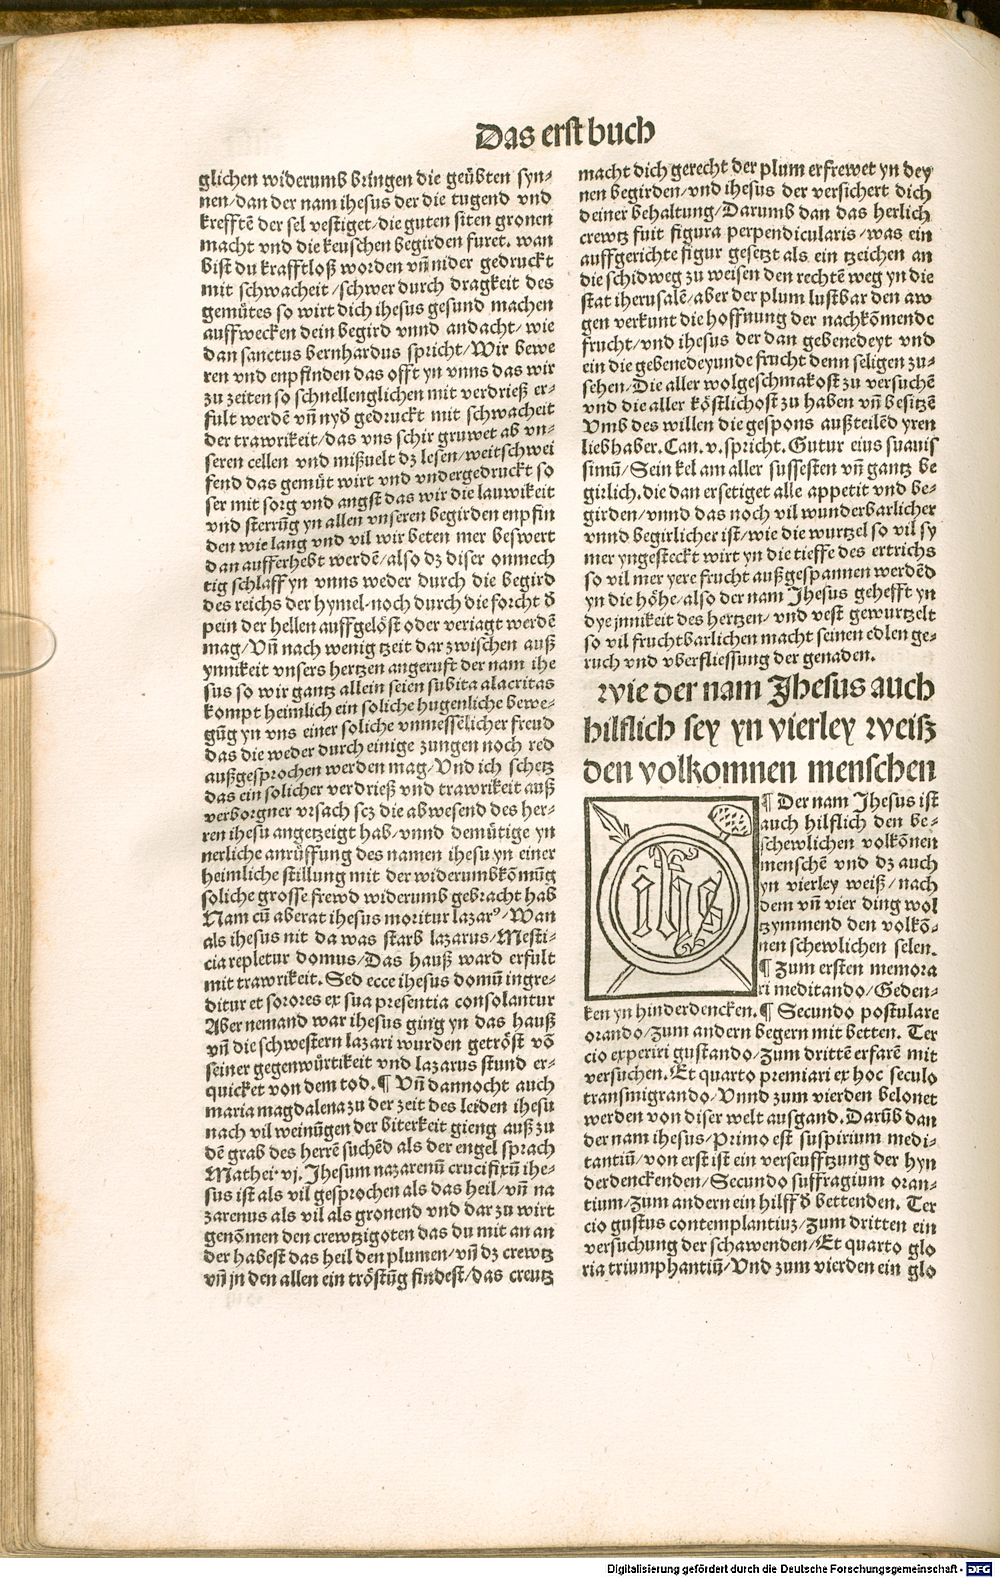 Das erst buch
glichen widerumb bringen die geübten syn-
nen/dan der nam ihesus der die tugend vnd
krefftē der sel vestiget/die guten siten gronen
macht vnd die keuschen begirden furet. wan
bist du krafftloß worden vñ nider gedruckt
mit schwacheit/schwer durch dragkeit des
gemütes so wirt dich ihesus gesund machen
auffwecken dein begird vnnd andacht/wie
dan sanctus bernhardus spricht/Wir bewe
ren vnd enpfinden das offt yn vnns das wir
zu zeiten so schnellenglichen mit verdrieß er-
fult werdē vñ nyd̕ gedruckt mit schwacheit
der trawrikeit/das vns schir gruwet ab vn-
seren cellen vnd mißuelt dz lesen/weitschwei
fend das gemüt wirt vnd vndergedruckt so
ser mit sorg vnd angst das wir die lauwikeit
vnd sterrūg yn allen vnseren begirden enpfin
den wie lang vnd vil wir beten mer beswert
dan aufferhebt werdē/also dz diser onmech
tig schlaff yn vnns weder durch die begird
des reichs der hymel·noch durch die forcht d̕
pein der hellen auffgelöst oder veriagt werdē
mag/Vñ nach wenig tzeit dar zwischen auß
ynnikeit vnsers hertzen angeruft der nam ihe
sus so wir gantz allein seien subita alacritas
kompt heimlich ein soliche hugenliche bewe-
gūg yn vns einer soliche vnmessēlicher freud
das die weder durch einige zungen noch red
außgesprochen werden mag/Vnd ich schetz
das ein solicher verdrieß vnd trawrikeit auß
verborgner vrsach scz die abwesend des her-
ren ihesu angetzeigt hab/vnnd demütige yn
nerliche anrüffung des namen ihesu yn einer
heimliche stillung mit der widerumbkōmūg
soliche grosse frewd widerumb gebracht hab
Nam cū aberat ihesus moritur lazarꝰ/Wan
als ihesus nit da was starb lazarus/Mesti-
cia repletur domus/Das hauß ward erfult
mit trawrikeit. Sed ecce ihesus domū ingre-
ditur et sorores ex sua presentia consolantur
Aber nemand war ihesus ging yn das hauß
vñ die schwestern lazari wurden getröst vō
seiner gegenwürtikeit vnd lazarus stund er-
quicket von dem tod.¶ Vñ dannocht auch
maria magdalena zu der zeit des leiden ihesu
nach vil weinūgen der biterkeit gieng auß zu
dē grab des herrē suchēd als der engel sprach
Mathei·vj. Jhesum nazarenū crucifixū ihe-
sus ist als vil gesprochen als das heil/vñ na
zarenus als vil als gronend vnd dar zu wirt
genōmen den crewtzigoten das du mit an an
der habest das heil den plumen/vñ dz crewtz
vñ jn den allen ein tröstūg findest/das creutz
macht dich gerecht der plum erfrewet yn dey
nen begirden/vnd ihesus der versichert dich
deiner behaltung/Darumb dan das herlich
crewtz fuit figura perpendicularis/was ein
auffgerichte figur gesetzt als ein tzeichen an
die schidweg zu weisen den rechtē weg yn die
stat iherusalē/aber der plum lustbar den aw
gen verkunt die hoffnung der nachkōmende
frucht/vnd ihesus der dan gebenedeyt vnd
ein die gebenedeyunde frucht denn seligen zu-
sehen/Die aller wolgeschmakost zu versuchē
vnd die aller köstlichost zu haben vñ besitzē
Vmb des willen die gespons außteilēd yren
liebhaber. Can. v. spricht. Gutur eius suauis
simū/Sein kel am aller suffesten vñ gantz be
girlich. die dan ersetiget alle appetit vnd be-
girden/vnnd das noch vil wunderbarlicher
vnnd begirlicher ist/wie die wurtzel so vil sy
mer yngesteckt wirt yn die tieffe des ertrichs
so vil mer yere frucht außgespannen werdēd
yn die höhe/also der nam Jhesus gehefft yn
dye jnnikeit des hertzen/vnd vest gewurtzelt
so vil fruchtbarlichen macht seinen edlen ge-
ruch vnd vberfliessung der genaden.
wie der nam Jhesus auch
hilflich sey yn vierley weiß
den volkomnen menschen
¶ Der nam Jhesus ist
auch hilflich den be-
schewlichen volkōnen
menschē vnd dz auch
yn vierley weiß/nach
dem vñ vier ding wol
tzymmend den volkō-
nen schewlichen selen.
¶ Zum ersten memora
ri meditando/Geden-
ihs
ken yn hinderdencken.¶ Secundo postulare
orando/zum andern begern mit betten. Ter
cio experiri gustando/zum drittē erfarē mit
versuchen. Et quarto premiari ex hoc seculo
transmigrando/Vnnd zum vierden belonet
werden von diser welt ausgand. Darūb dan
der nam ihesus/Primo est suspirium medi-
tantiū/von erst ist ein verseufftzung der hyn
derdenckenden/Secundo suffragium oran-
tium/zum andern ein hilff d̕ bettenden. Ter
cio gustus contemplantiuz/zum dritten ein
versuchung der schawenden/Et quarto glo
ria triumphantiū/Vnd zum vierden ein glo
Digitalisierung gefördert durch die Deutsche Forschungsgemeinschaft - DFG